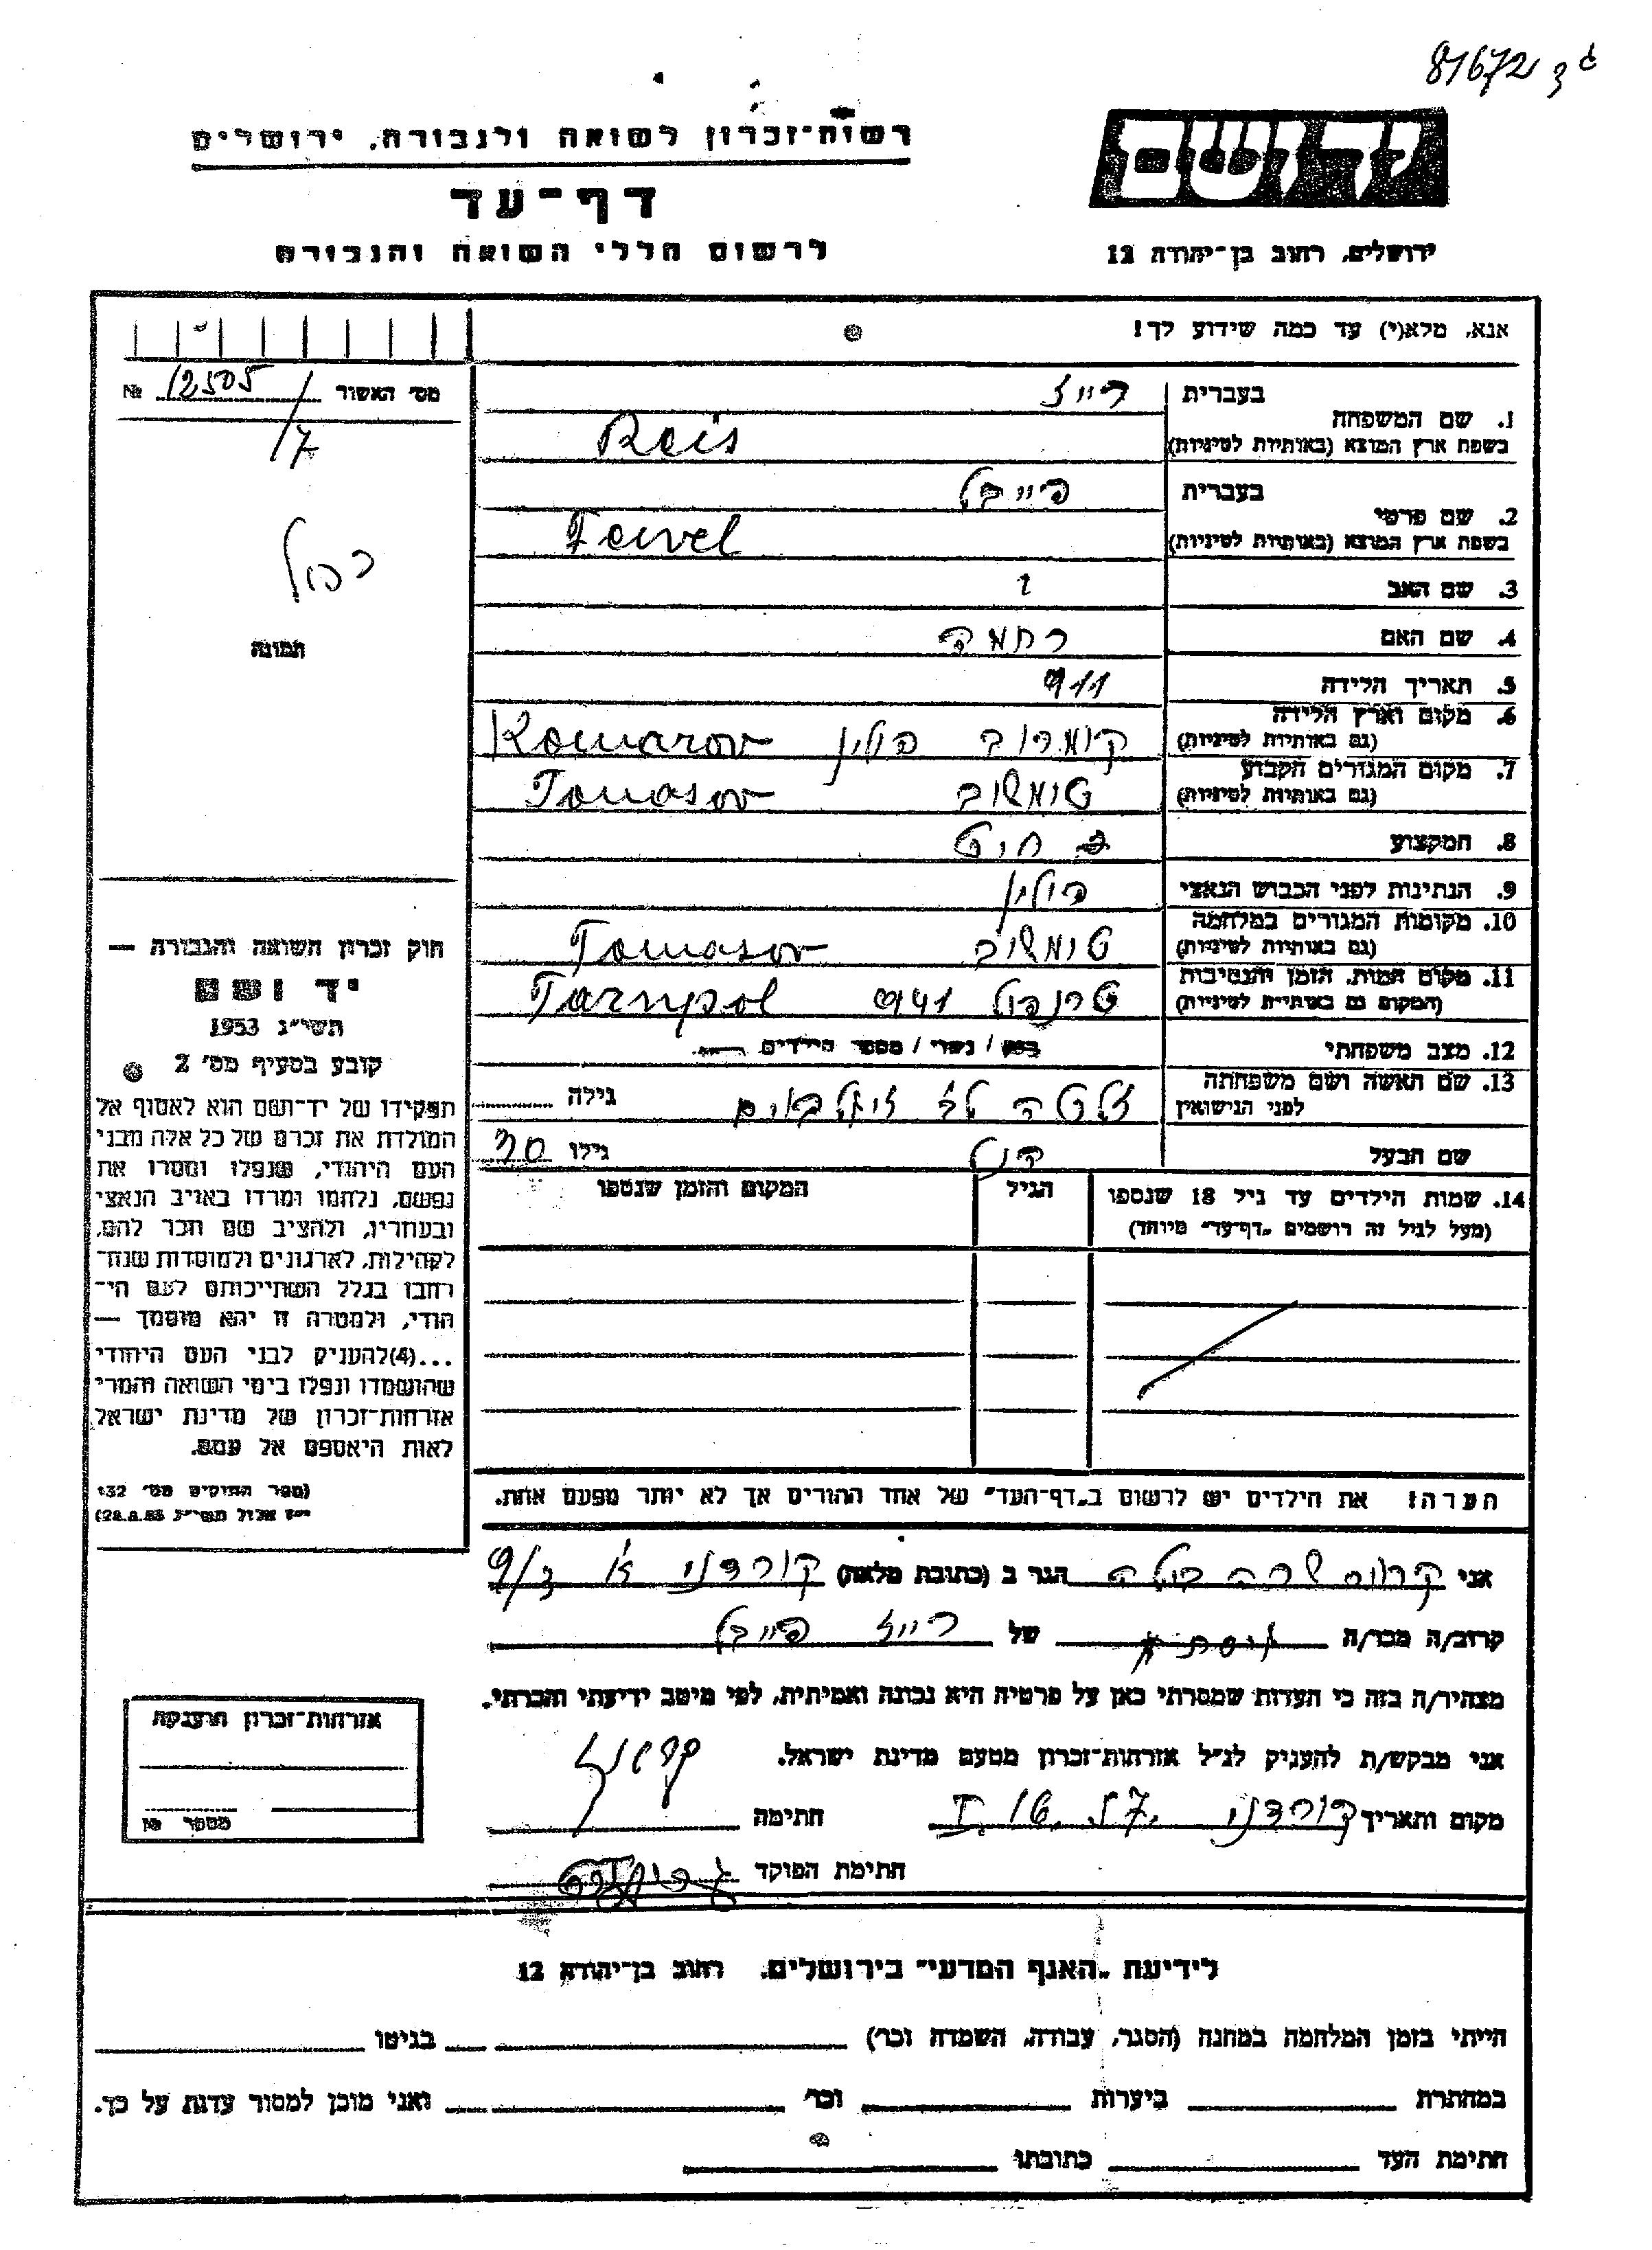 81672 ג 3
רשות-זכרון לשואה ולגבורה, ירושלים
דף-עד
לרשום חללי השואה והגבורה
יד ושם
ירושלים, רחוב בן-יהודה 12
אנא, מלא(י) עד כמה שידוע לך!
מס' האשור 12505 №
/7
תמונה
1. שם המשפחה
בעברית רייז
בשפת ארץ המוצא (באותיות לטיניות) Reis
2. שם פרטי
בעברית פייבל
בשפת ארץ המוצא (באותיות לטיניות) Feivel
3. שם האב
4. שם האם נחמה
5. תאריך הלידה 911
6. מקום וארץ הלידה
(גם באותיות לטיניות) קומרוב פולין Komarov
7. מקום המגורים הקבוע
(גם באותיות לטיניות) טומשוב Tomasov
8. המקצוע חייט
9. הנתינות לפני הכבוש הנאצי פולין
10. מקומות המגורים במלחמה
(גם באותיות לטיניות) טומשוב Tomasov
11. מקום המות, הזמן והנסיבות
(המקום גם באותיות לטיניות) טרנפול 941 Tarnypol
12. מצב משפחתי רווק / נשוי / מספר הילדים
13. שם האשה ושם משפחתה
לפני הנישואין זלטה גילה
שם הבעל גילו 30
14. שמות הילדים עד גיל 18 שנספו
(מעל לגיל זה רושמים "דף-עד" מיוחד)
הגיל
המקום והזמן שנספו
הערה! את הילדים יש לרשום ב"דף-העד" של אחד ההורים אך לא יותר מפעם אחת.
חוק זכרון השואה והגבורה —
יד ושם
תשי"ג 1953
קובע בסעיף מס' 2
תפקידו של יד-ושם הוא לאסוף אל
המולדת את זכרם של כל אלה מבני
העם היהודי, שנפלו ומסרו את
נפשם, נלחמו ומרדו באויב הנאצי
ובעוזריו, ולהציב שם וזכר להם,
לקהילות, לארגונים ולמוסדות שנח־
רבו בגלל השתייכותם לעם הי־
הודי, ולמטרה זו יהא מוסמך —
...(4) להעניק לבני העם היהודי
שהושמדו ונפלו בימי השואה והמרי
אזרחות-זכרון של מדינת ישראל
לאות היאספם אל עמם.
(ספר החוקים מס' 132,
י"ז אלול תשי"ג 28.8.53)
אני שרה הגר ב (כתובת מלאה) קורדני א
קרוב/ה מכר/ה של רייז פייבל
מצהיר/ה בזה כי העדות שמסרתי כאן על פרטיה היא נכונה ואמיתית, לפי מיטב ידיעתי והכרתי.
אני מבקש/ת להעניק לנ"ל אזרחות-זכרון מטעם מדינת ישראל.
מקום ותאריך קורדני חתימה
חתימת הפוקד
אזרחות-זכרון הוענקה
מספר №
לידיעת "האגף המדעי" בירושלים, רחוב בן-יהודה 12
הייתי בזמן המלחמה במחנה (הסגר, עבודה, השמדה וכו') בגיטו
במחתרת ביערות וכו' ואני מוכן למסור עדות על כך.
חתימת העד כתובתו